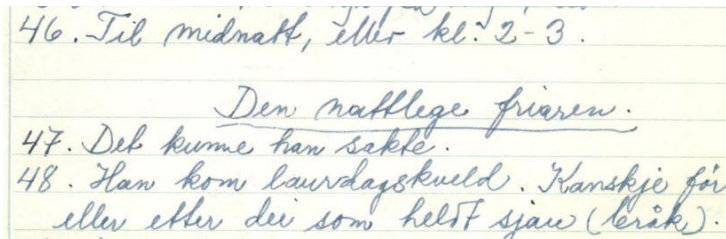 46. Til midnatt, eller kl. 2-3.
Den nattlege friaren.
47. Det kunne han sakte.
48. Han kom laurdagskveld. Kanskje før
eller etter dei som heldt sjau (bråk).